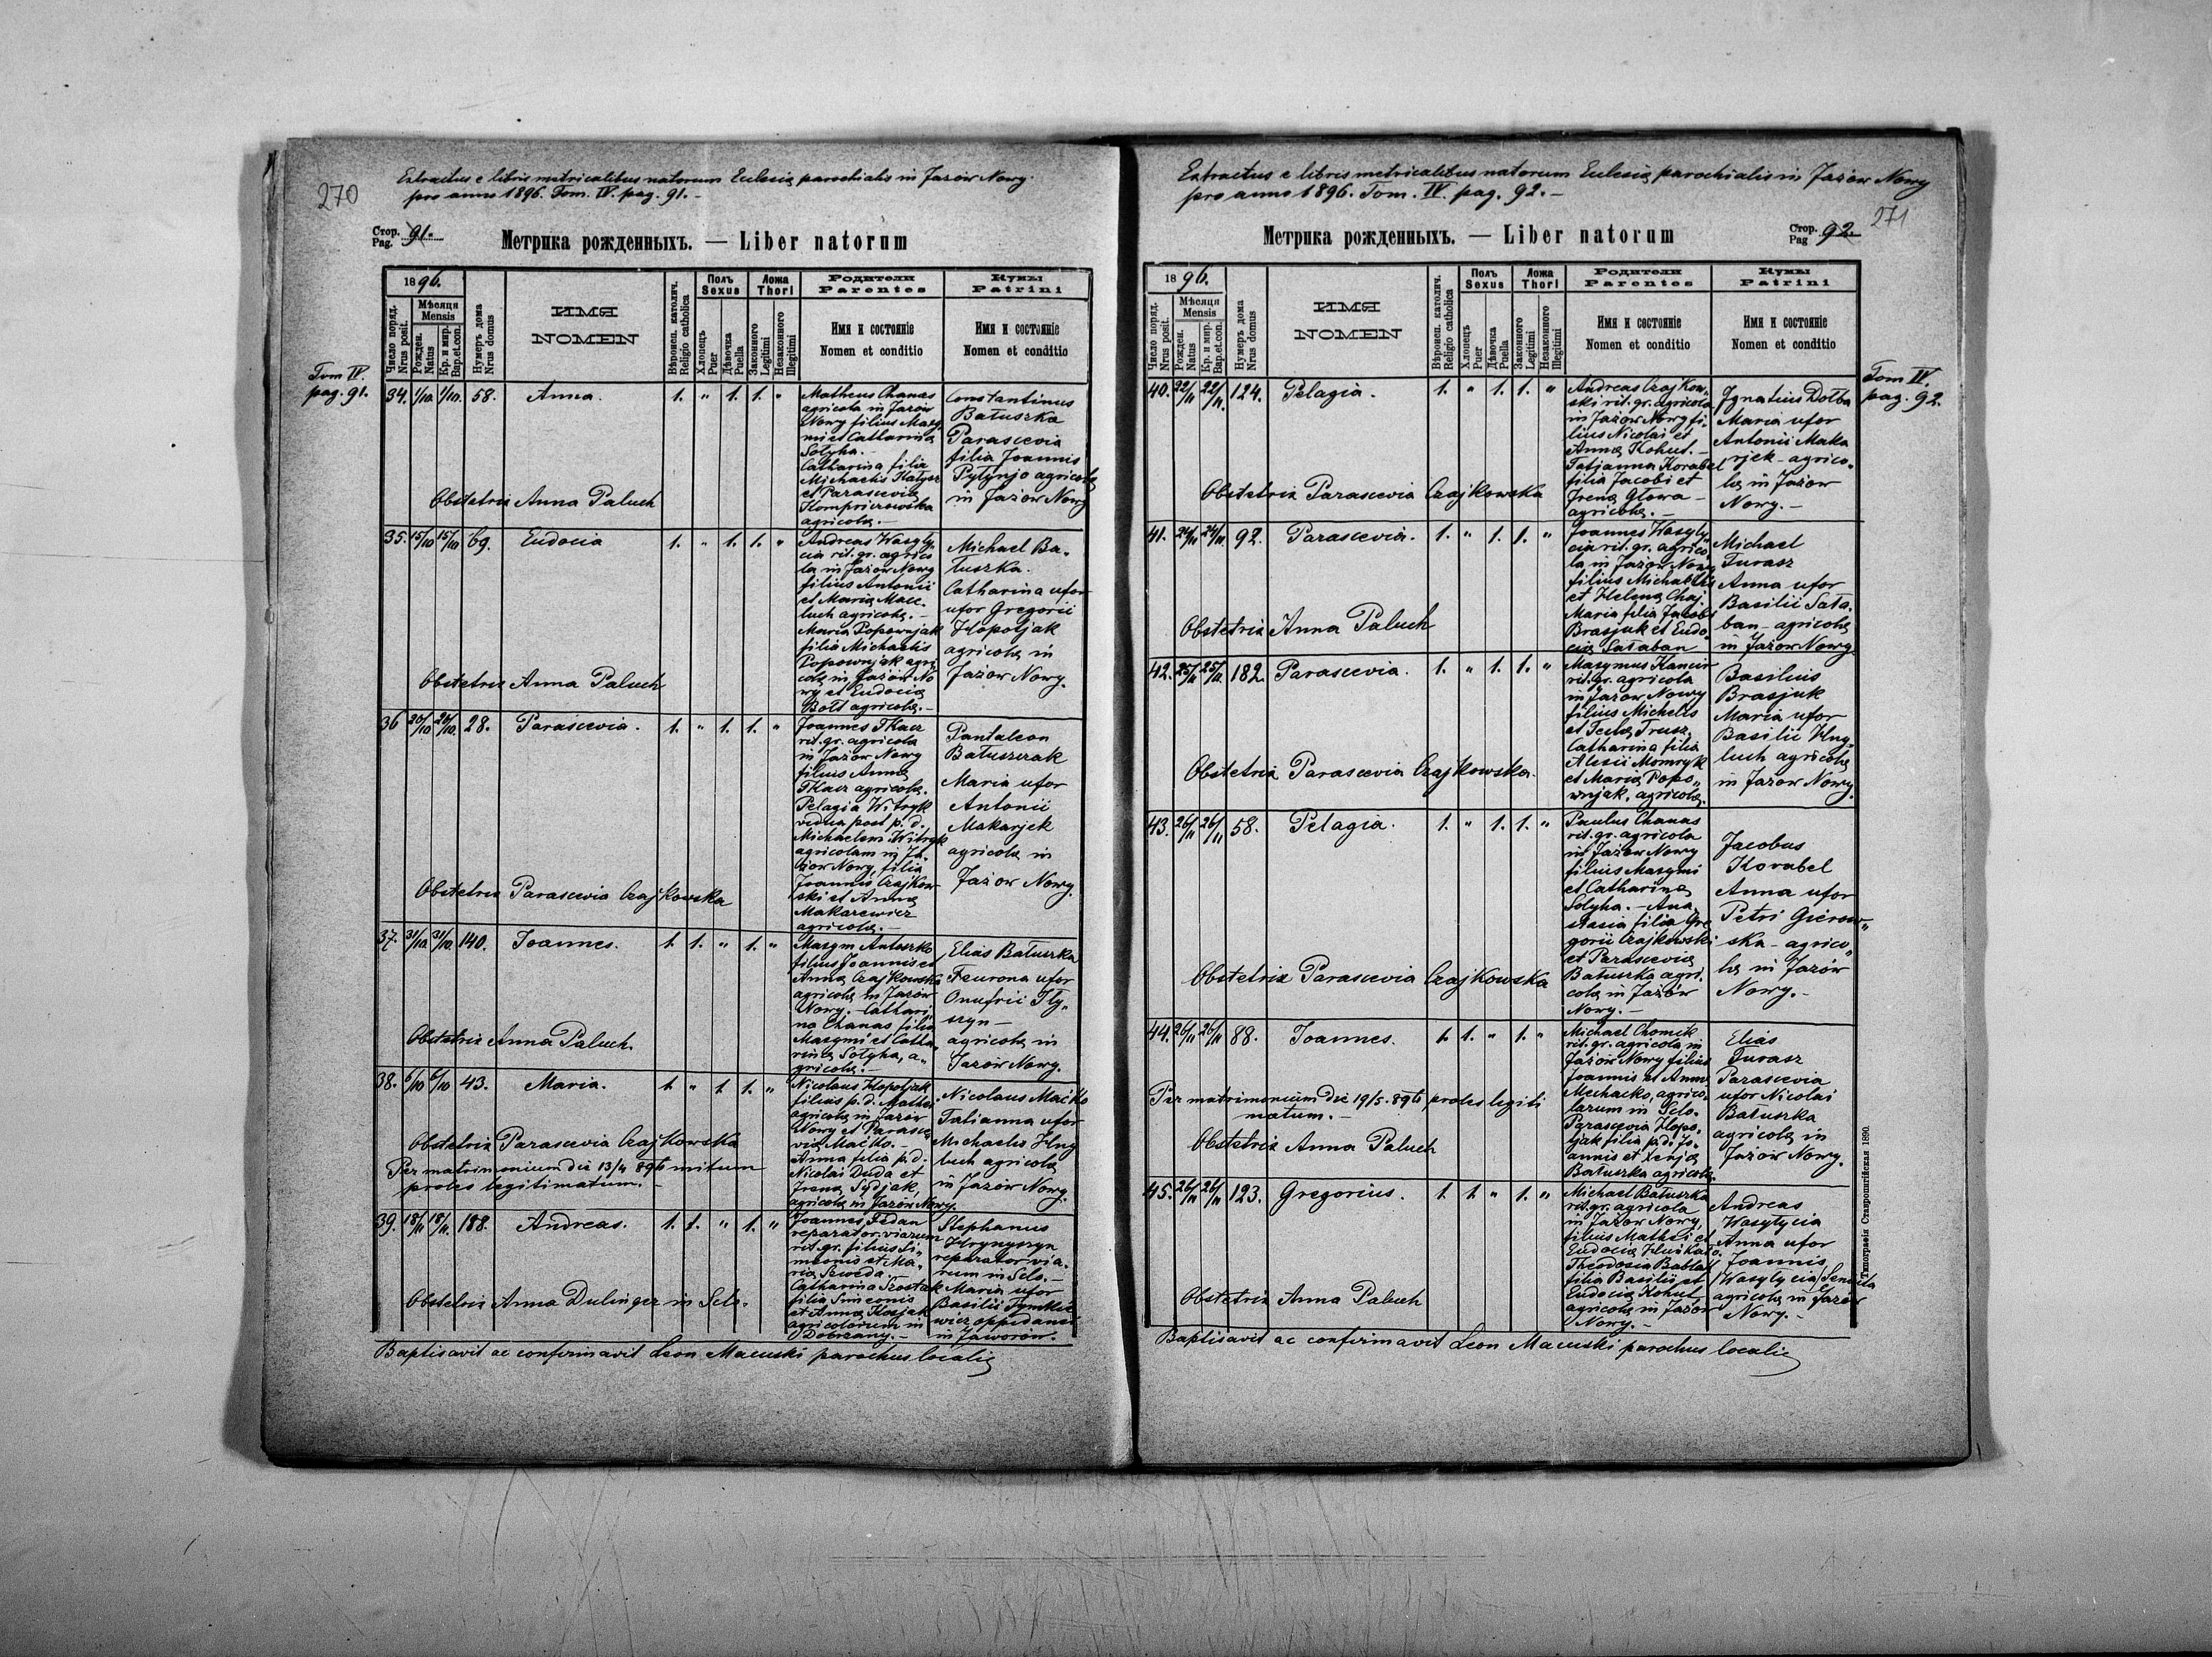 270
Extractus e libris metricalibus natorum Eclesiæ parochialis in Jazów Nowy
pro anno 1896. Tom. IV. pag. 91. -
Стор.
Pag. 91.
Метрика рожденныхъ. — Liber natorum
1896.
Число поряд.
Nrus posit.
Мѣсяця
Mensis
Рожден.
Natus
Кр. и мир.
Bap. et con.
Нумеръ дома
Nrus domus
ИМЯ
NOMEN
Вѣроисп. католич.
Religio catholica
Полъ
Sexus
Хлопецъ
Puer
Дѣвочка
Puella
Ложа
Thori
Законного
Legitimi
Незаконного
Illegitimi
Родители
Parentes
Имя и состояніе
Nomen et conditio
Кумы
Patrini
Имя и состояніе
Nomen et conditio
Tom IV.
pag. 91.
34. 1/10 1/10. 58. Anna. 1. " 1. 1. "
Matheus Chanas
agricola in Jazów
Nowy filius Maxy
mi et Catharinæ
Sołyha. -
Catharina filia
Michaelis Hałysz
et Parasceviæ
agricolæ. -
Constantinus
Batuszka
Parascevia
filia Joannis
Pytynjo agricolæ
in Jazów Nowy
Obstetrix Anna Paluch
35. 15/10 15/10 69. Eudocia 1. " 1. 1. "
Andreas Wasyly
cia rit. gr. agrico
la in Jazów Nowy
filius Antonii
et Mariæ Mace
luch agricolæ. -
Maria Popownjak
filia Michaelis
Popownjak agri
colæ in Jazów No
wy et Eudociæ
Bołd agricolæ. -
Michael Ba-
tuszka.
Catharina uxor
uxor Gregorii
Hopotjak
agricolæ in
Jazów Nowy.
Obstetrix Anna Paluch
36 20/10 20/10. 28. Parascevia. 1. " 1. 1. "
Joannes Tkacz
rit. gr. agricola
in Jazów Nowy
filius Annæ
Tkacz agricolæ.
Pelagia Witryk
vidua post p. d.
Michaelem Witryk
agricolam in Ja-
zów Nowy, filia
Joannis Czajkow
ski et Annæ
Makarewicz
agricolæ. -
Pantaleon
Batuszczak
Maria uxor
Antonii
Makarjek
agricolæ in
Jazów Nowy.
Obstetrix Parascevia Czajkowska
37. 31/10. 31/10. 140. Joannes. 1. 1. " 1. "
Maxym Antuszko
filius Joannis et
Annæ Czajkowska
agricola in Jazów
Nowy. - Cathari
na Chanas filia
Maxymi et Catha
rinæ Sołyha, a-
gricolæ. -
Elias Batuszka
Feurona uxor
Onufrii Hy-
szyn -
agricolæ in
Jazów Nowy.
Obstetrix Anna Paluch.
38. 6/10 6/10 43. Maria. 1. " 1 1. "
Nicolaus Hopotjak
filius p. d. Mathei
agricola in Jazów
Nowy et Parasce
viæ Maćko. -
Anna filia p. d.
Nicolai Duda et
Irenæ Sydjak,
agricolæ in Jazów Nowy.
Nicolaus Maćko
Tatianna uxor
Michaelis Hng
luch agricolæ
in Jazów Nowy.
Obstetrix Parascevia Czajkowska
Per matrimonium die 13/4 896 initum
proles legitimatum. -
39. 18/11 18/11. 188. Andreas. 1. 1. " 1. "
Joannes Fedan
reparator viarum
rit. gr. filius Si-
meonis et Ma-
riæ Szweda. -
Catharina Szostak
filia Simeonis
et Annæ Kosjak
agricolarum in
Dobrzany. -
Stephanus
Hrynyszyn
reparator via-
rum in Selo. -
Maria uxor
Basilii Tymkie
wicz oppidani
in Jaworów.
Obstetrix Anna Dulinger in Selo.
Baptisavit ac confirmavit Leon Macuski parochus localis
Extractus e libris metricalibus natorum Eclesiæ parochialis in Jazów Nowy
pro anno 1896. Tom. IV. pag. 92. -
271
Метрика рожденныхъ. — Liber natorum
Стор.
Pag 92.
1896.
Число поряд.
Nrus posit.
Мѣсяця
Mensis
Рожден.
Natus
Кр. и мир.
Bap. et con.
Нумеръ дома
Nrus domus
ИМЯ
NOMEN
Вѣроисп. католич.
Religio catholica
Полъ
Sexus
Хлопецъ
Puer
Дѣвочка
Puella
Ложа
Thori
Законного
Legitimi
Незаконного
Illegitimi
Родители
Parentes
Имя и состояніе
Nomen et conditio
Кумы
Patrini
Имя и состояніе
Nomen et conditio
Tom IV.
pag. 92.
40. 22/11 22/11. 124. Pelagia. 1. " 1. 1. "
Andreas Czajkow-
ski rit. gr. agricola
in Jazów Nowy fi-
lius Nicolai et
Annæ Kohut. -
Tatjanna Korabel
filia Jacobi et
Irenæ Głowa -
agricolæ. -
Ignatius Dołba
Maria uxor
Antonii Maka
rjek - agrico-
læ in Jazów
Nowy. -
Obstetrix Parascevia Czajkowska
41. 24/11 24/11. 92. Parascevia. 1. " 1. 1. "
Joannes Wasyly
cia rit. gr. agrico
la in Jazów Nowy
filius Michaelis
et Helenæ Chaj
Maria filia Jacobi
Brasjuk et Eudo
ciæ Sałaban
Michael
Turasz
Anna uxor
Basilii Sała-
ban - agricolæ
in Jazów Nowy.
Obstetrix Anna Paluch
42. 25/11 25/11. 182. Parascevia. 1. " 1. 1. "
Maxymus Kancir
rit. gr. agricola
in Jazów Nowy
filius Michelis
et Teclæ Trusz,
Catharina filia
Alexii Momryk
et Mariæ Popo-
wnjak, agricolæ.
Basilius
Brasjuk
Maria uxor
Basilii Hng-
luch agricolæ
in Jazów Nowy.
Obstetrix Parascevia Czajkowska.
43. 26/11 26/11 58. Pelagia. 1. " 1. 1. "
Paulus Chanas
rit. gr. agricola
in Jazów Nowy
filius Maxymi
et Catharinæ
Sołyha. - Ana
stasia filia Gre
gorii Czajkowski
et Parasceviæ
Batuszka agri-
colæ in Jazów
Nowy. -
Jacobus
Korabel
Anna uxor
Petri Gierow-
ska - agrico-
læ in Jazów
Nowy. -
Obstetrix Parascevia Czajkowska
44. 26/11 26/11 88. Joannes. 1. 1. " 1. "
Michael Chomik
rit. gr. agricola in
Jazów Nowy filius
Joannis et Annæ
Mechacko, agrico-
larum in Selo.
Parascevia Hopo-
tjak filia p. d. Jo-
annis et Xenjæ
Batuszka agricolæ.
Elias
Turasz
Parascevia
uxor Nicolai
Batuszka
agricolæ in
Jazów Nowy.
Per matrimonium die 19/5. 896 proles legiti
matum. -
Obstetrix Anna Paluch
45. 26/11 26/11 123. Gregorius. 1. 1. " 1. "
Michael Batuszka
rit. gr. agricola
in Jazów Nowy,
filius Mathei et
Eudociæ
Theodosia Bablak
filia Basilii et
Eudociæ Kohut
agricolæ in Jazów
Nowy. -
Andreas
Wasylycia
Anna uxor
Joannis
Wasylycia
agricolæ in Jazów
Nowy. -
Obstetrix Anna Paluch
Baptisavit ac confirmavit Leon Macuski parochus localis
Типографія Ставропигійская 1890.